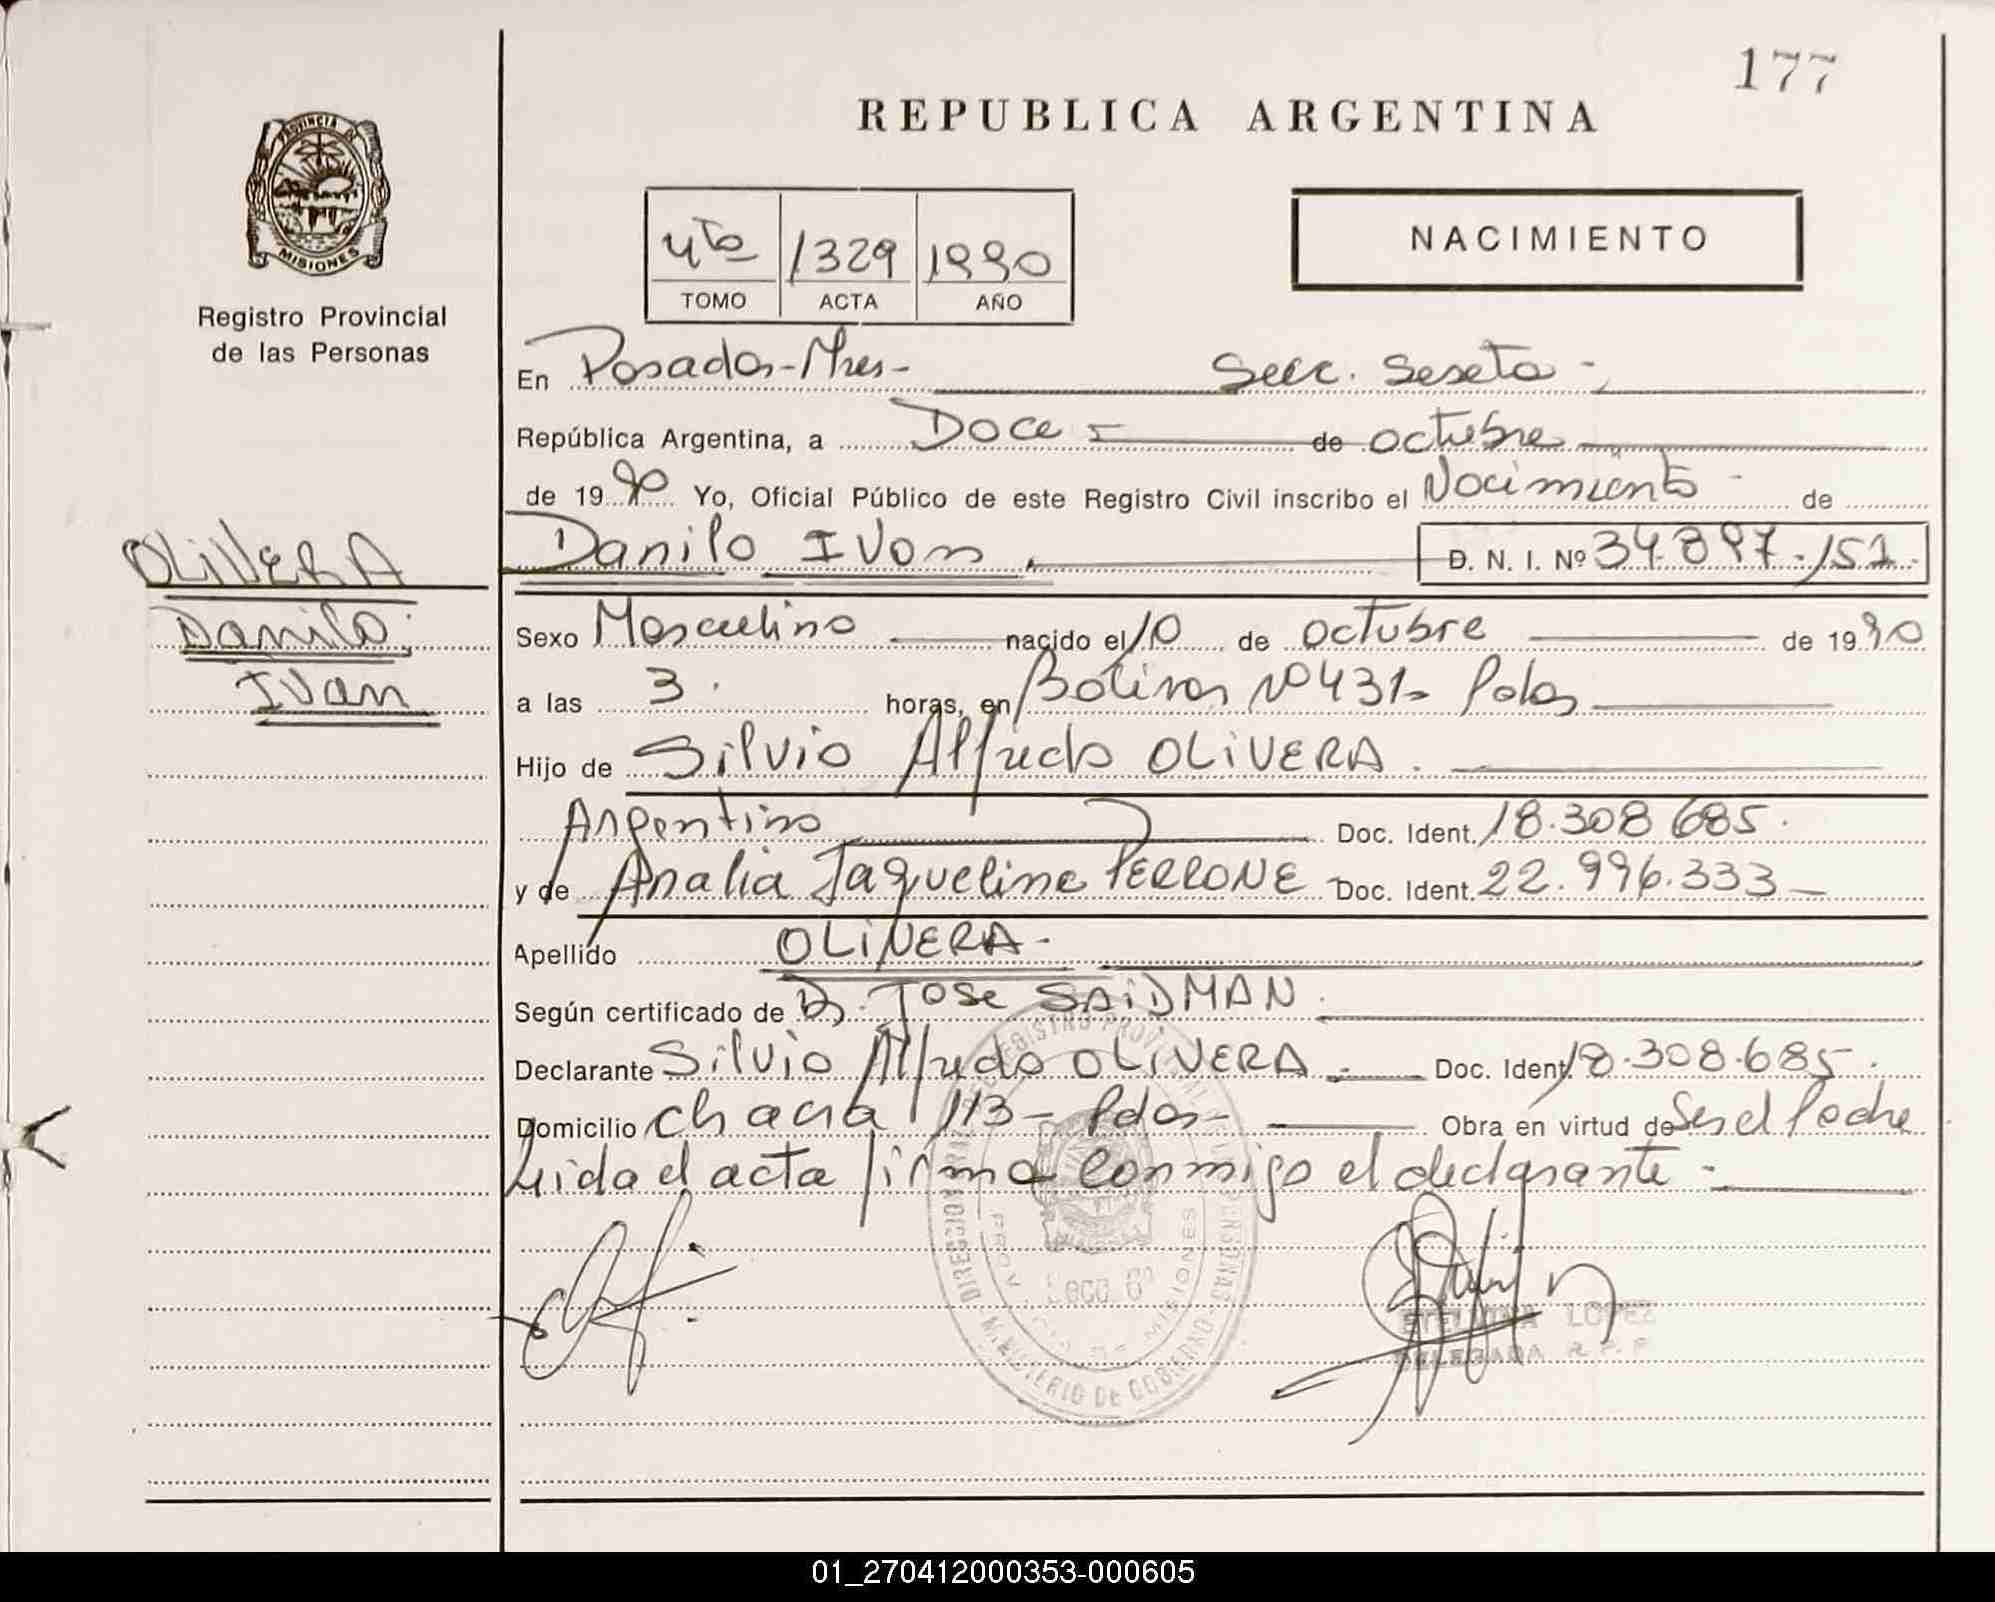 177
REPUBLICA ARGENTINA
PROVINCIA DE
MISIONES
Registro Provincial
de las Personas
4to 1329 1990
TOMO ACTA AÑO
NACIMIENTO
En Posadas-Mnes- Secc. Sexta-
República Argentina, a Doce - de octubre
de 1990 Yo, Oficial Público de este Registro Civil inscribo el Nacimiento - de
OLIVERA
Danilo Ivan D. N. I. Nº 34.897.151.
Danilo
Sexo Masculino nacido el 10 de octubre de 1990
Ivan
a las 3. horas, en Bolivar Nº 431- Pdas
Hijo de Silvio Alfredo OLIVERA.
Argentino Doc. Ident. 18.308.685.
y de Analia Jaqueline PERRONE - Doc. Ident. 22.996.333-
Apellido OLIVERA-
Según certificado de Dr. Jose SAIDMAN.
Declarante Silvio Alfredo OLIVERA.- Doc. Ident. 18.308.685.
Domicilio chacra 113- Pdas- Obra en virtud de Ser el Padre
Leida el acta firma conmigo el declarante-
MINISTERIO DE GOBIERNO
PROV. MISIONES
LOPEZ
DELEGADA R.P.P
01_270412000353-000605